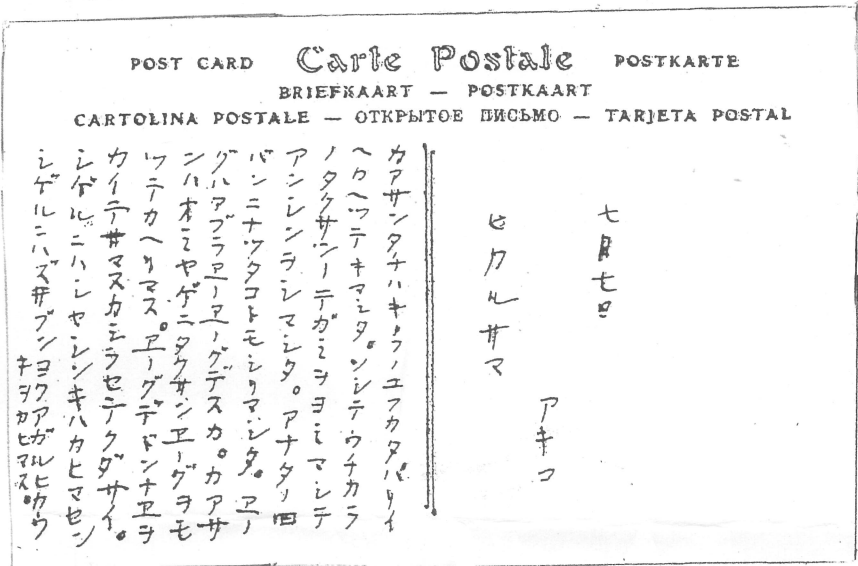 POST CARD Carte Postale POSTKARTE
BRIEFKAART — POSTKAART
CARTOLINA POSTALE — ОТКРЫТОЕ ПИСЬМО — TARJETA POSTAL
七月七日
ヒカルサマ
アキコ
カアサンタチハキノフノユフカタパリイ
ヘカヘツテキマシタ。ソシテウチカラ
ノタクサンノテガミヲヨミマシテ
アンシンヲシマシタ。アナタノ四
バンニナツタコトモシリマシタ。ヱノ
グハアブラヱノヱノグデスカ。カアサ
ンハオミヤゲニタクサンヱノグヲモ
ツテカヘリマス。ヱノグデドンナヱヲ
カイテヰマスカシラセテクダサイ。
シゲルニハシヤシンキハカヒマセン
シゲルニハズヰブンヨクアガルヒカウ
キヲカヒマス。